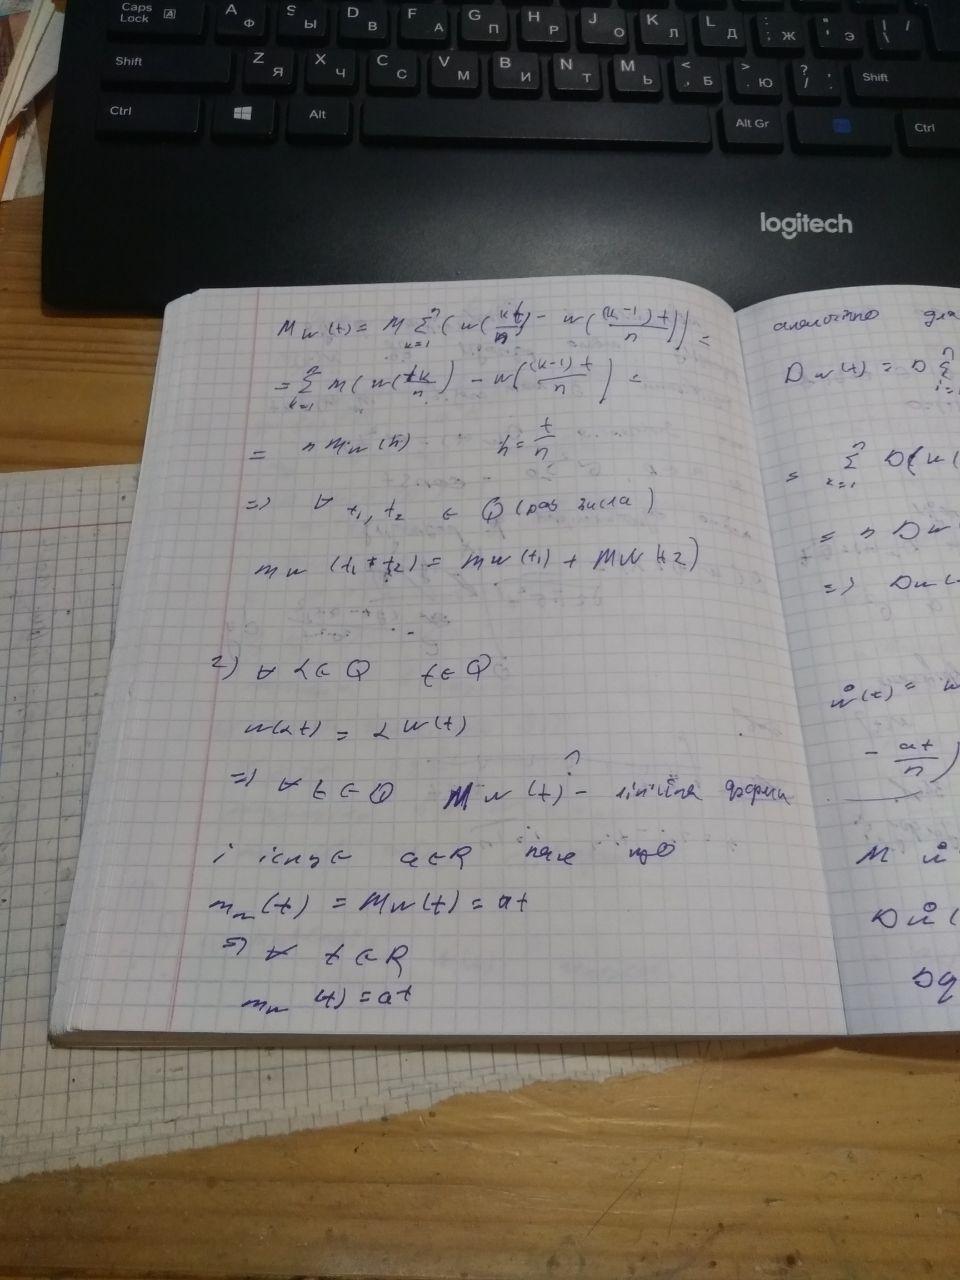 Caps Lock A
A Ф
S Ы
D В
F А
G П
H Р
J О
K Л
L Д
: ; Ж
" ' Э
| \ /
Shift
Z Я
X Ч
C С
V М
B И
N Т
M Ь
< , Б
> . Ю
? / .
Shift
Ctrl
Alt
Alt Gr
Ctrl
logitech
M w(t) = M Σ k=1 n (w(kt/n) - w((k-1)t/n)) =
= Σ k=1 n M(w(tk/n) - w((k-1)t/n)) =
= n M w(h) h = t/n
=> ∀ t1, t2 ∈ Q (рац числа)
m w (t1 + t2) = m w(t1) + M w(t2)
2) ∀ λ ∈ Q t ∈ Q
w(λt) = λ w(t)
=> ∀ t ∈ Q M w(t) - лінійна форма
і існує a ∈ R таке що
m w(t) = M w(t) = at
=> ∀ t ∈ R
m w(t) = at
аналогічно для
D w(t) = D Σ
= Σ k=1 n D(w(
= n D w
=> D w(
ẘ(t) = w
- at/n)
M ẘ
D ẘ(